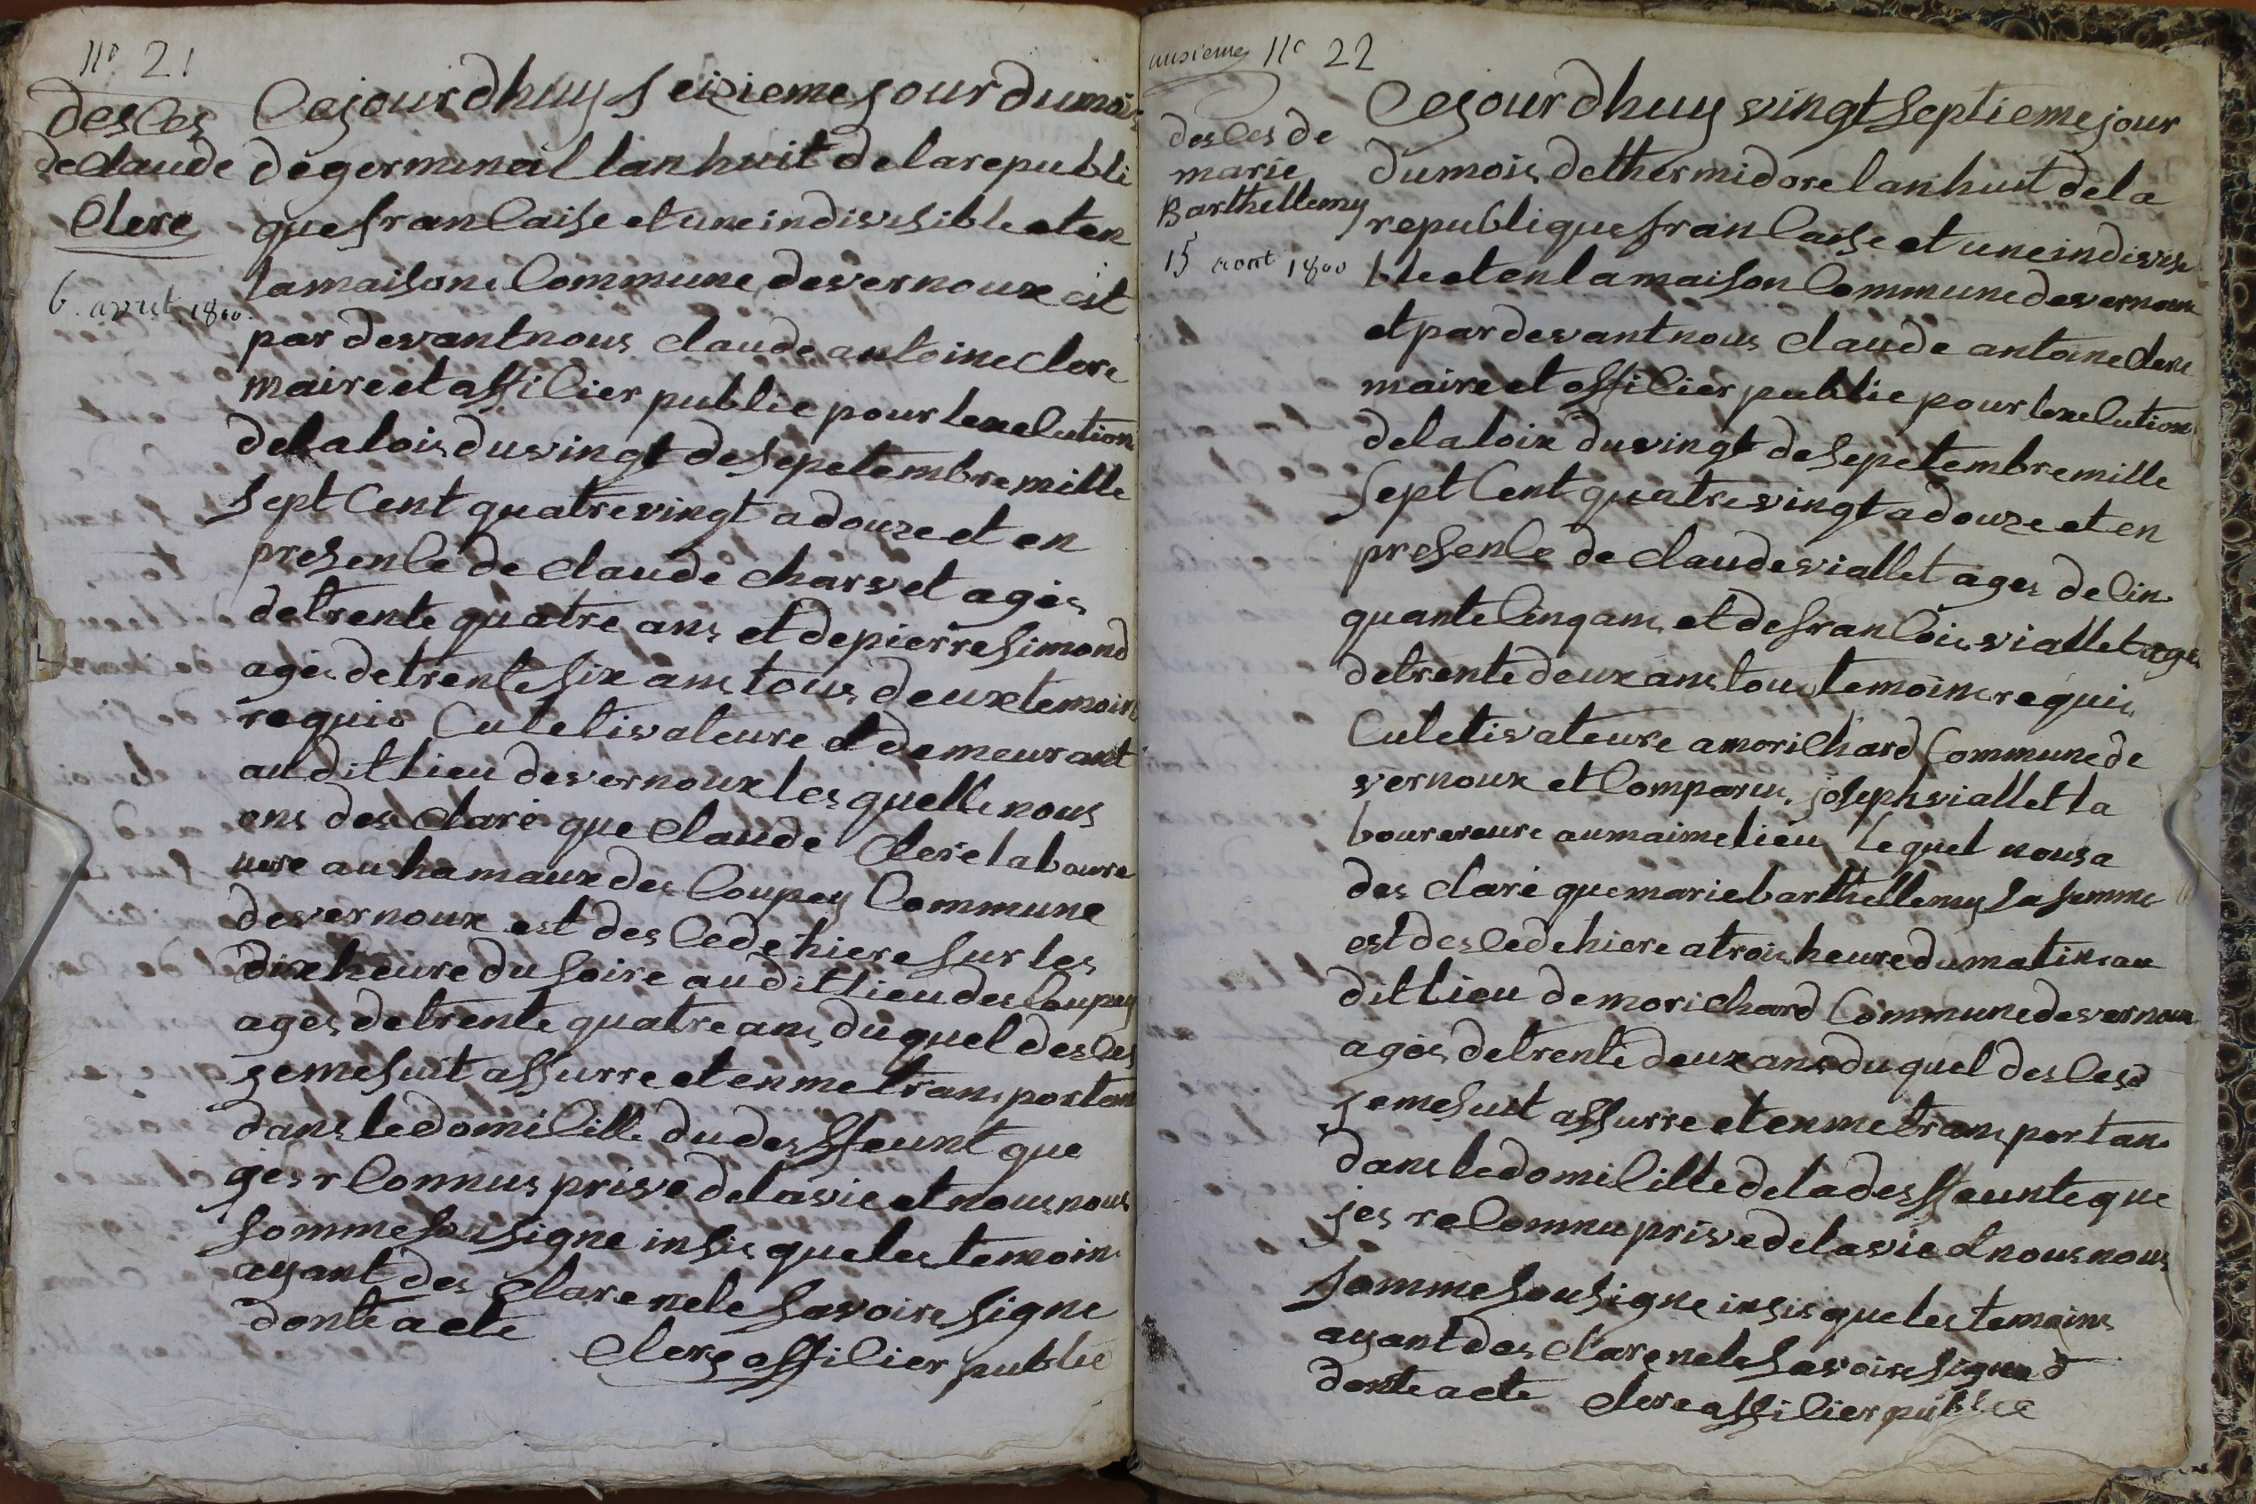 no 21
desces
de claude
Clere
6. avril 1800.
Cejourdhuy seizieme jour du mois
de germinal lan huit de la republi
que francaise et une indivisible et en
la maisone Commune de vernoux est
par devant nous claude antoine Clere
maire et afficier publie pour lexecution
de la lois du vingt de sepetembre mille
sept Cent quatre vingt a douze et en
presence de claude charvet ages
de trente quatre ans et de pierre simond
ages de trente six ans tous deux temoins
requis Culetivateure et demeurant
au dit lieu de vernoux les quelle nous
ons des claré que claude Clere laboure
ure au hamaux des Coupey Commune
de vernoux est des cede hiere sur les
dixe heure du soire au dit lieu des Coupey
ages de trente quatre ans du quel desces
je me suit assurre et en me trans portant
dans le domicille du des ffeunt que
jes r Connus prive de la vie et nous nous
somme sousigne insis que les temoin
ayant des clare ne le savoire signe
donte acte
Clere officier publie
unsieme no 22
desces de
marie
Barthellemy
15 aout 1800
Cejourdhuy vingt septieme jour
du mois de thermidore lan huit de la
republique francaise et une indivisi
ble et en la maison Commune de vernoux
et par devant nous claude antoine clere
maire et officier publie pour lexecution
de la loix du vingt de sepetembre mille
sept Cent quatre vingt a douze et en
presence de claude viallet ages de Cin
quante Cinq ans et de francois viallet ages
de trente deux ans tous temoins requis
Culetivateure a morichard Commune de
vernoux et Comparus joseph viallet la
bourereure au maime lieu lequel nous a
des claré que marie barthellemy sa femme
est des cede hiere a trois heure du matin au
dit lieu de morichard Commune de vernoux
ages de trente deux ans du quel des cesd
je me suit assurre et en me trans portan
dans le domicille de la des ffeunte que
jes re Connu prive de la vie et nous nous
somme sousigne insis que les temoins
ayant des clare ne le savoire signed
donte acte clere afficier publie